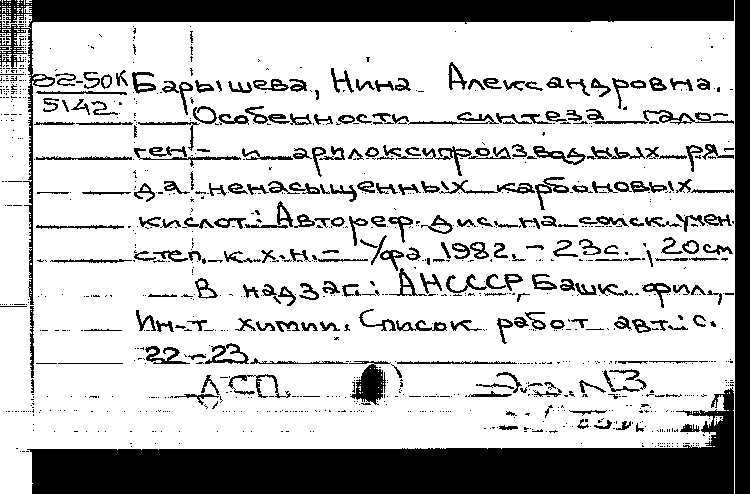 82-50К
5142
Барышева, Нина Александровна.
Особенности синтеза гало-
ген- и арилоксипроизводных ря-
да ненасыщенных карбоновых
кислот: Автореф. дис. на соиск. учен.
степ. к. х. н. - Уфа, 1982. - 23 с.; 20 см
В надзаг.: АН СССР, Башк. фил.,
Ин-т химии. Список работ авт.: с.
22-23.
ДСП. Экз. №